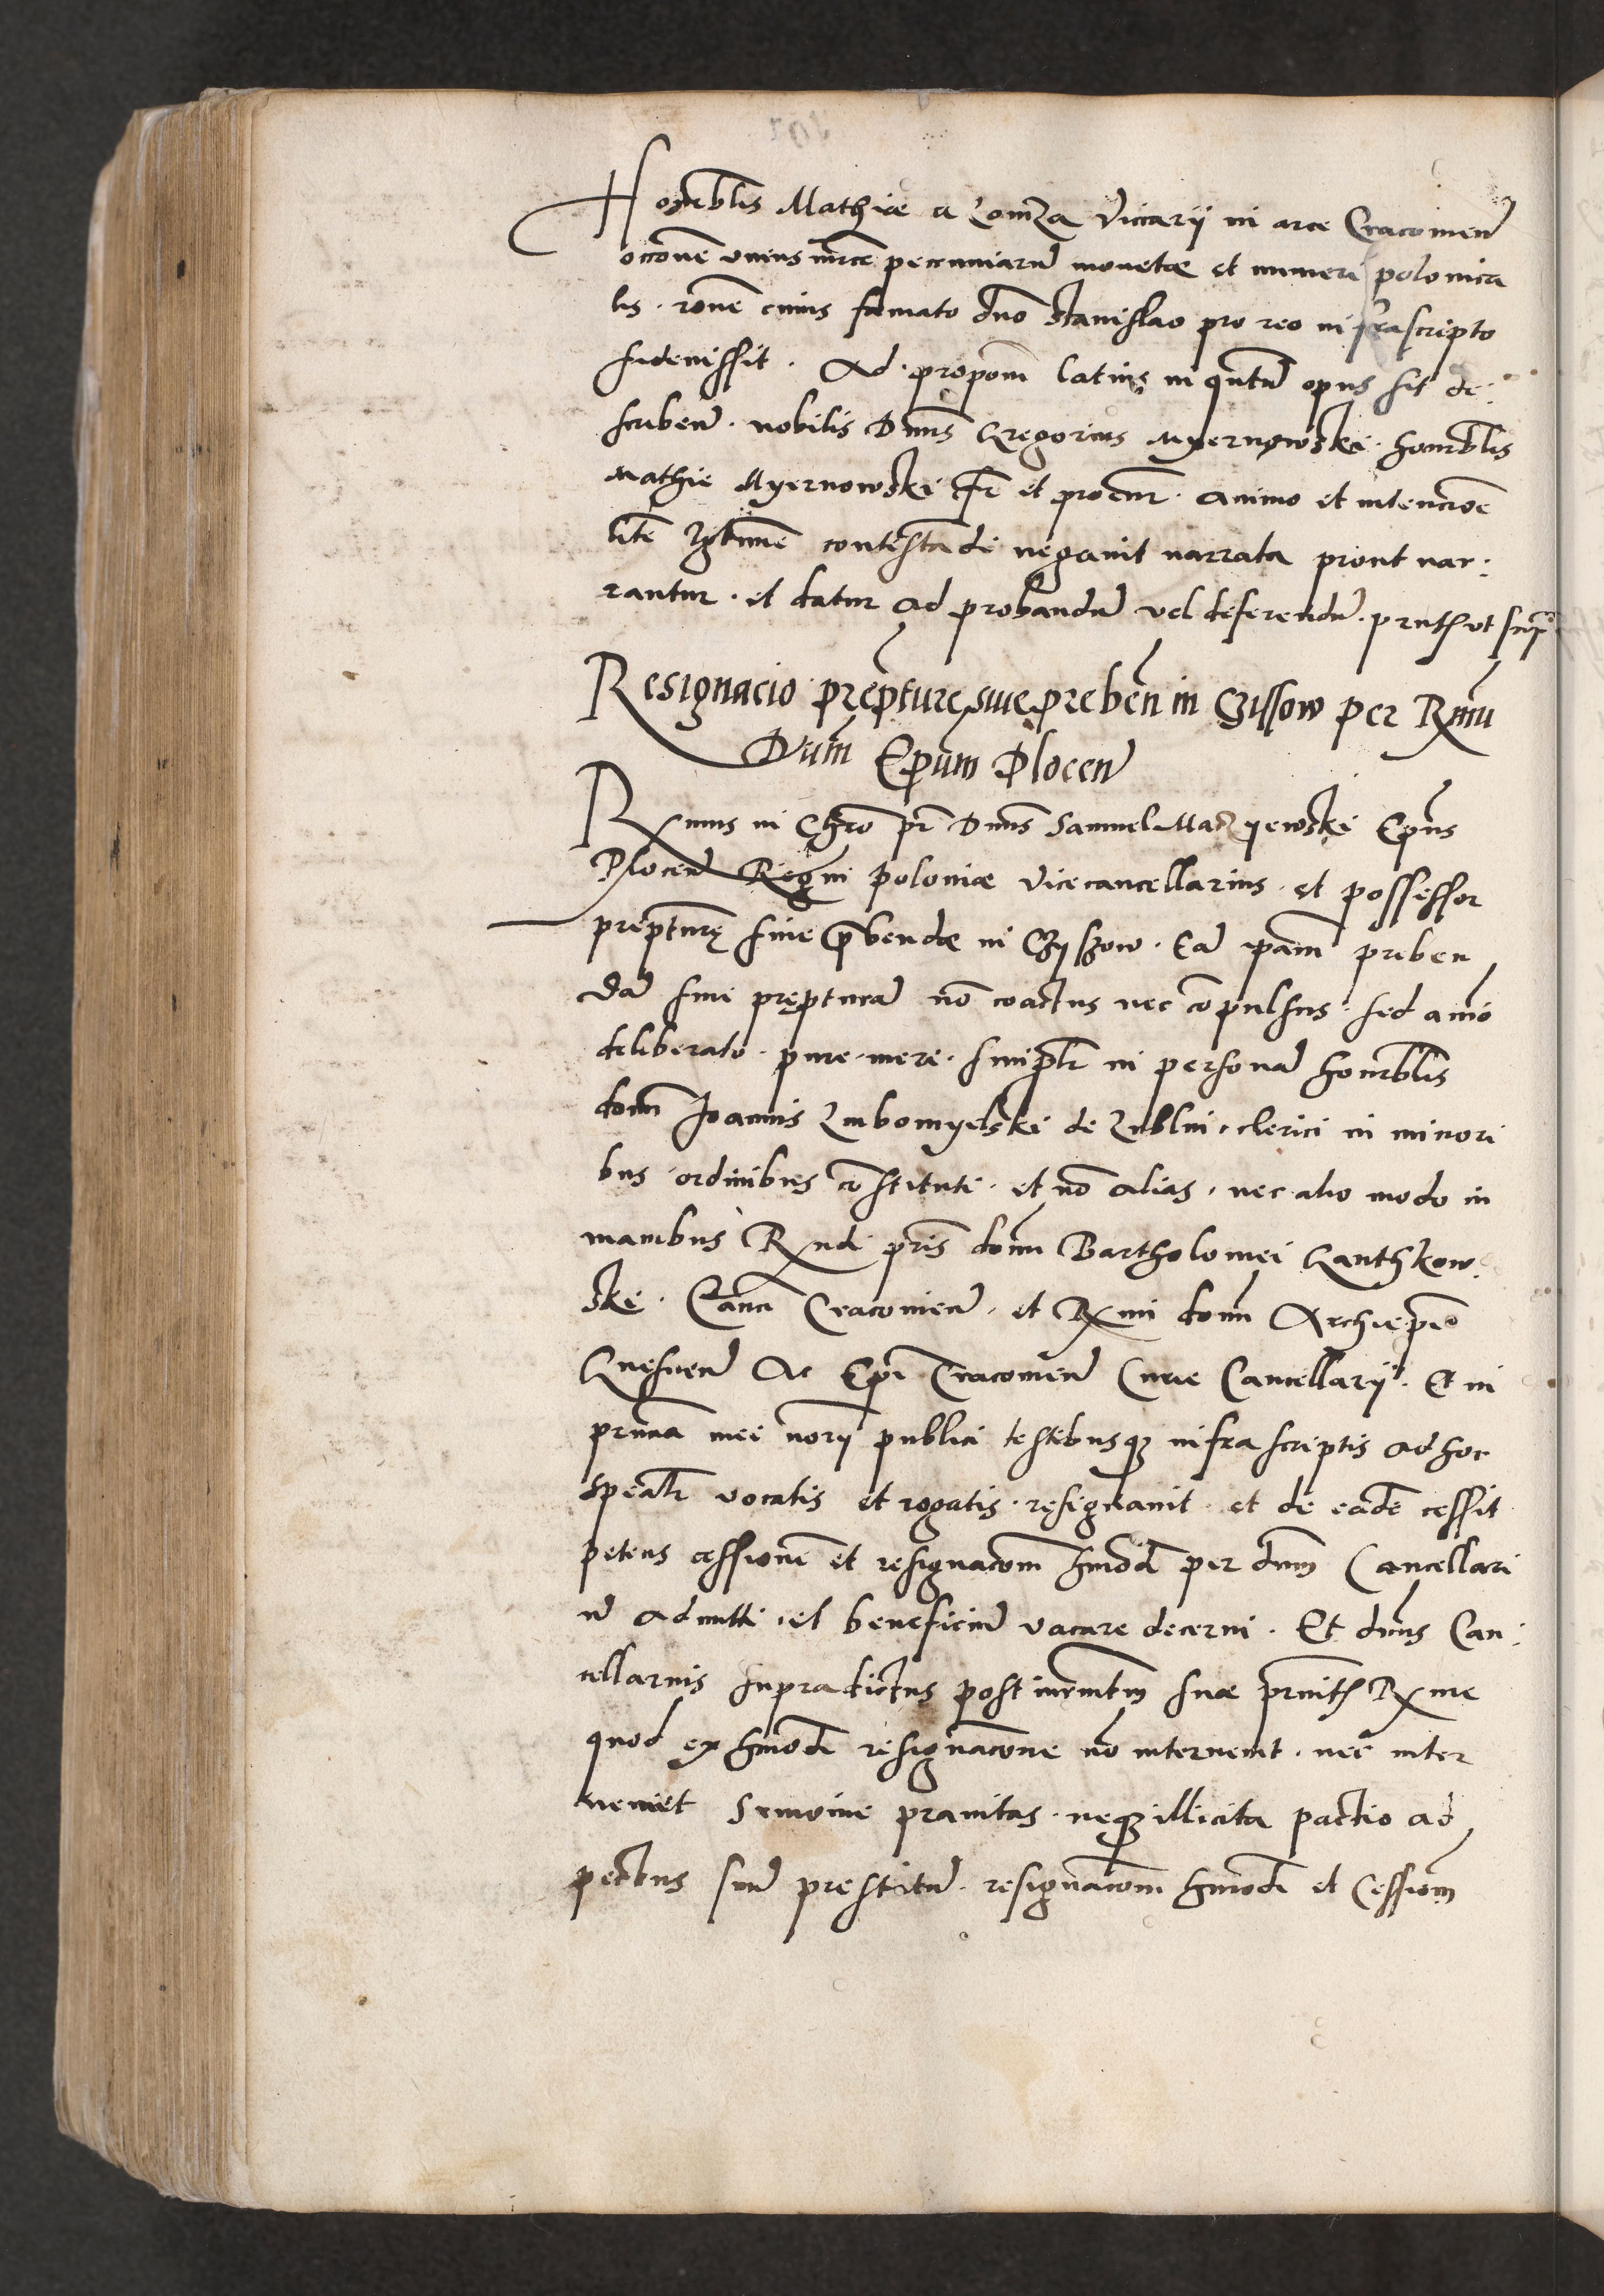 Honrablis Mathiae a Lomza Viccarii in arce Cracovien
occone unius mrce pecuniarum monetae et numeri polonica
lis. rone cuius famato dno Stanislao pro reo infrascripto
fideiussit. Ad propom latius in qntum opus sit de:
scriben. nobilis Dnus Gregorius Myernowski. honrablis
Mathie Myernowski fr et procur. animo et intencioe
lite contestadi negavit narrata prout nar:
rantur. et datur ad probandum vel deferendum. prnts ut supra
Resignacio prepture sive preben in Czissow per Rxmu
Dum Epum Plocen
Rxmus in Chro pr Dnus Samuel Maczyewski Epus
Plocen Regni poloniae Vicecancellarius. et possessor
prepturę sive prebendae in Czyszow. Eam ipam preben
dam sive prępturam no coactus nec compulsus. sed aio
deliberato. pure. mere. simplr in personam honrablis
domi Joannis Lubomyelski de Lublin. clerici in minori
bus ordinibus constituti. et no alias. nec alio modo in
manibus Rxndi pris domi Bartholomei Ganthkow
ski. Canci Cracovien. et Rxmi domi Archiepi
Gnesnen Ac Epi Cracovien Curie Cancellarii. Et in
prncia mei norii publici testibusque infrascriptis ad hoc
spealr vocatis et rogatis. resignavit et de eade cessit
petens cessione et resignacom hmodi per dnum Cancellari
um admitti. et beneficium vacare decerni. Et dnus Can:
cellarius supradictus post iuramtum suae prnits Rxme
quod ex hmodi resignacone no intervenit. nec inter
veniet Symoniae pravitas. neque illicita pactio ad
pectus suum prestitum. resignacom hmodi et Cessiom